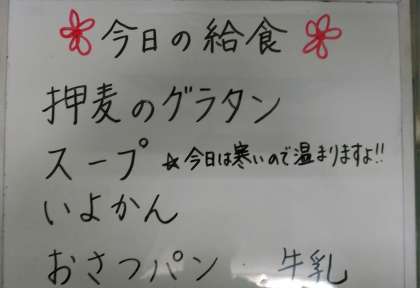 今日の給食
押麦のグラタン
スープ ☆今日は寒いので温まりますよ!!
いよかん
おさつパン 牛乳